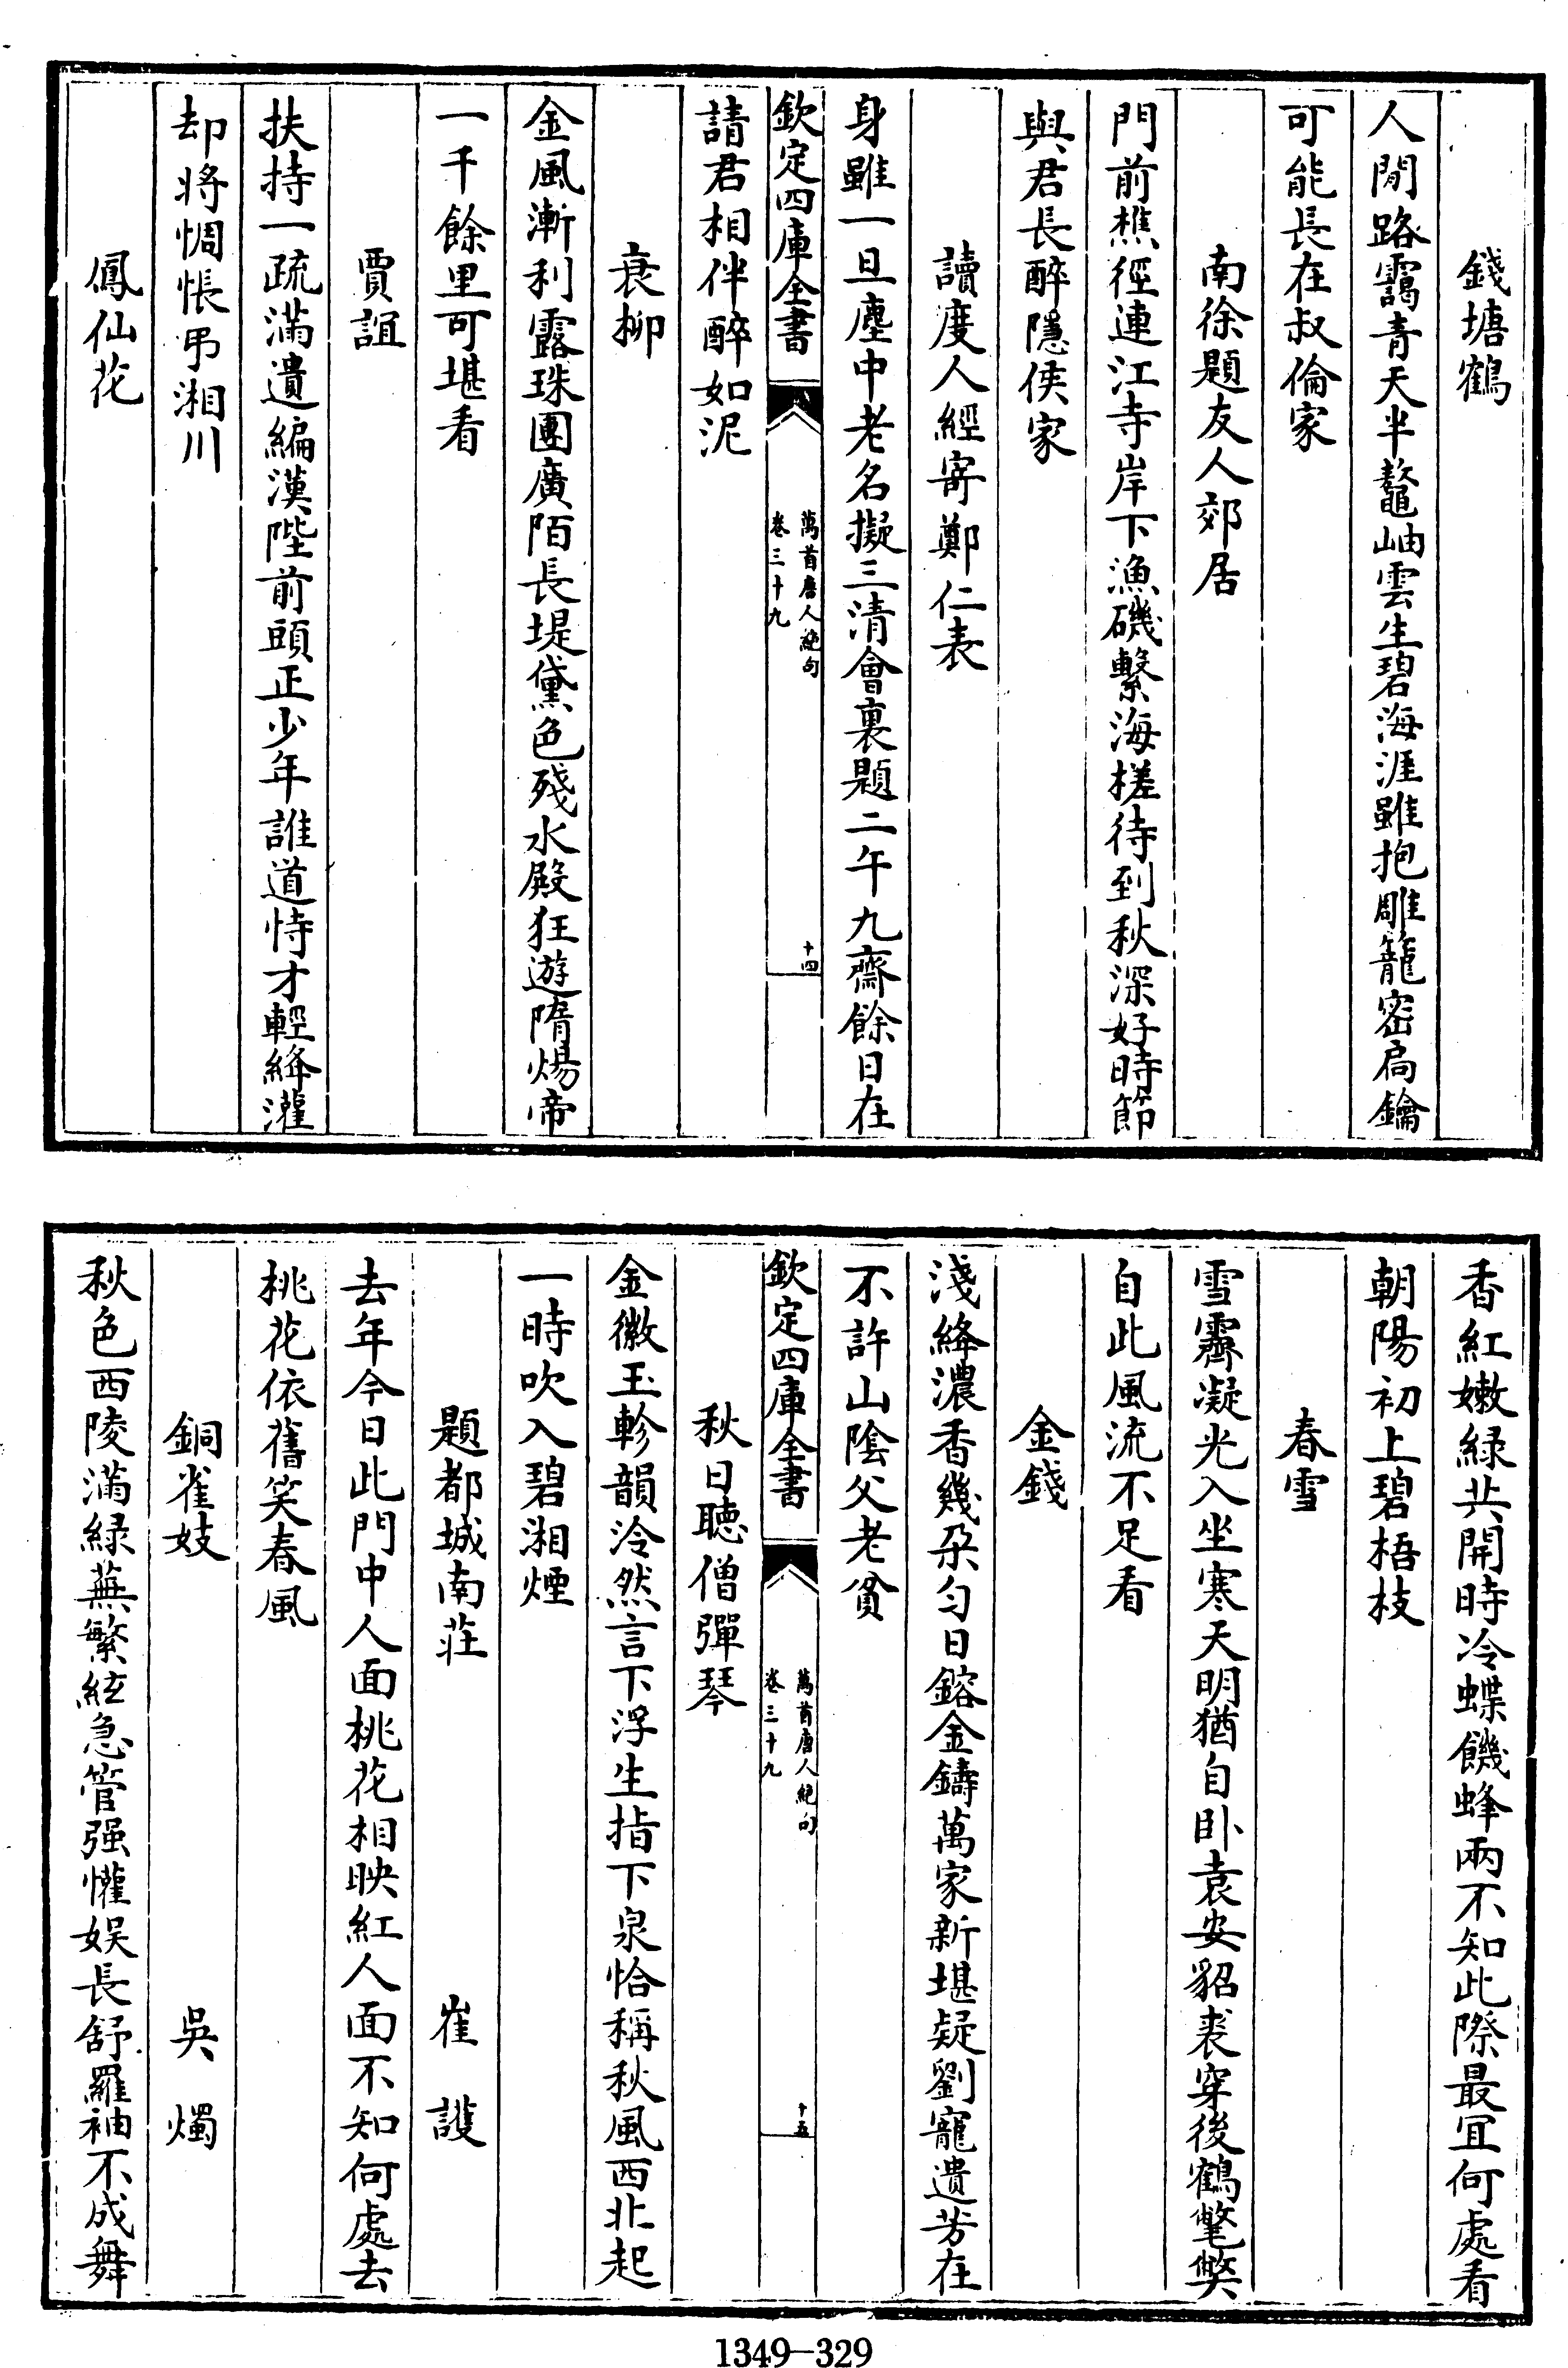 錢塘鶴
人閒路靄青天半鼇岫雲生碧海涯雖抱雕籠密扃鑰
可能長在叔倫家
南徐題友人郊居
門前樵徑連江寺岸下漁磯繫海槎待到秋深好時節
與君長醉隱侯家
讀度人經寄鄭仁表
身雖一旦塵中老名擬三清會裏題二午九齋餘日在
欽定四庫全書
萬首唐人絶句
卷三十九
十四
請君相伴醉如泥
衰柳
金風漸利露珠團廣陌長堤黛色殘水殿狂遊隋煬帝
一千餘里可堪看
賈誼
扶持一疏滿遺編漢陛前頭正少年誰道恃才輕絳灌
却將惆悵弔湘川
鳳仙花
香紅嫩緑共開時冷蝶饑蜂兩不知此際最冝何處看
朝陽初上碧梧枝
春雪
雪霽凝光入坐寒天明猶自卧袁安貂裘穿後鶴氅獘
自此風流不足看
金錢
淺絳濃香幾朶勻日鎔金鑄萬家新堪疑劉寵遺芳在
不許山陰父老貧
欽定四庫全書
萬首唐人絶句
卷三十九
十五
秋日聽僧彈琴
金徽玉軫韻泠然言下浮生指下泉恰稱秋風西北起
一時吹入碧湘煙
題都城南莊 崔護
去年今日此門中人面桃花相映紅人面不知何處去
桃花依舊笑春風
銅雀妓 吳燭
秋色西陵滿緑蕪繁絃急管强懽娱長舒羅袖不成舞
1349-329